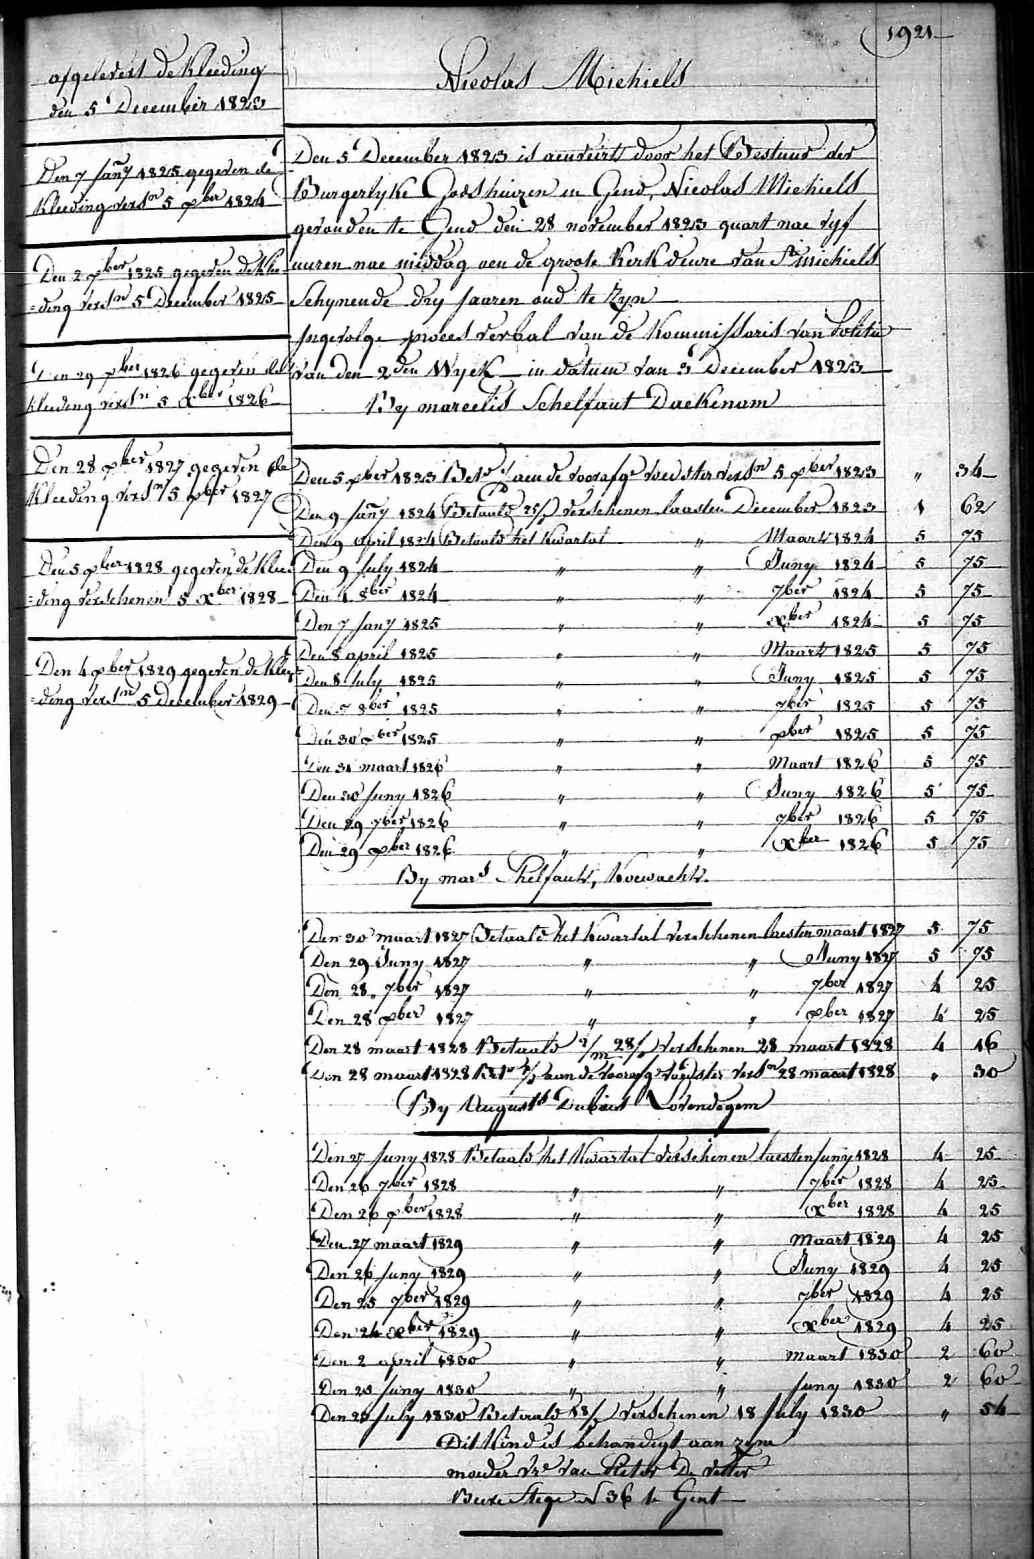 1921
afgelevert de kleeding
den 5 December 1823
Den 7 Jany 1825 gegeven de
kleeding versn 5 xber 1824
Den 2 xber 1825 gegeven de klee
=ding versn 5 December 1825
Den 29 xber 1826 gegeven de
kleeding versn 5 xber 1826
Den 28 xber 1827 gegeven de
kleeding versn 5 xber 1827
Den 5 xber 1828 gegeven de klee
=ding verschenen 5 xber 1828
Den 4 xber 1829 gegeven de klee=
=ding versn 5 December 1829
Nicolas Michiels
Den 5 December 1823 is aenveirt door het Bestuur der
Burgerlyke Godshuizen in Gend, Nicolas Michiels
gevonden te Gend den 28 november 1823 quart nae vyf
uuren nae middag aen de groote Kerk deure van St michiels
Schynende dry jaaren oud te zyn
Ingevolge proces verbal van de Kommissaris van Politie
van den 2den Wyck in datum van 3 December 1823
By marcelis Schelfaut Dackenam
Den 5 xber 1823 aen de voorafge voedster versn 5 xber 1823 " 34
Den 9 Jany 1824 Betaald 25/ verschenen laasten December 1823 1 62
Den 9 April 1824 Betaald het Kwartal " Maart 1824 5 75
Den 9 July 1824 " " Juny 1824 5 75
Den 1 8ber 1824 " " 7ber 1824 5 75
Den 7 Jany 1825 " " xber 1824 5 75
Den 8 april 1825 " " Maart 1825 5 75
Den 8 July 1825 " " Juny 1825 5 75
Den 7 8ber 1825 " " 7ber 1825 5 75
Den 30 xber 1825 " " xber 1825 5 75
Den 31 maart 1826 " " Maart 1826 5 75
Den 30 Juny 1826 " " Juny 1826 5 75
Den 29 7ber 1826 " " 7ber 1826 5 75
Den 29 xber 1826 " " xber 1826 5 75
By mars Shelfaut, Koewacht.
Den 30 maart 1827 Betaald het Kwartal verschenen laesten maart 1827 5 75
Den 29 Juny 1827 " " Juny 1827 5 75
Den 28 7ber 1827 " " 7ber 1827 4 25
Den 28 xber 1827 " " xber 1827 4 25
Den 28 maart 1828 Betaald 2/m 28/ verschenen 28 maart 1828 4 16
Den 28 maart 1828 aan de voorafge voedster versn 28 maart 1828 " 30
By August Lovendegem
Den 27 Juny 1828 Betaald het Kwartal verschenen laesten Juny 1828 4 25
Den 26 7ber 1828 " " 7ber 1828 4 25
Den 26 xber 1828 " " xber 1828 4 25
Den 27 maart 1829 " " Maart 1829 4 25
Den 26 Juny 1829 " " Juny 1829 4 25
Den 25 7ber 1829 " " 7ber 1829 4 25
Den 24 xber 1829 " " xber 1829 4 25
Den 2 april 1830 " " Maart 1830 2 60
Den 25 Juny 1830 " " Juny 1830 2 60
Den 23 July 1830 Betaald 18/ verschenen 18 July 1830 " 54
Dit Kind is behandigt aan zyne
moeder vre van Pieter De
Stege N 36 te Gent